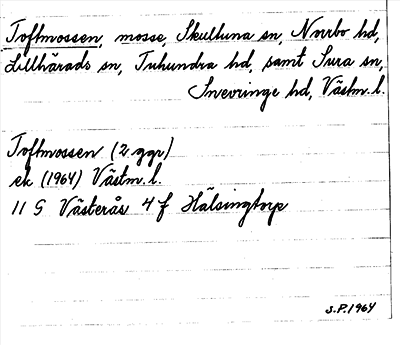 Toftmossen, mosse, Skultuna sn, Norrbo hd,
Lillhärads sn, Tuhundra hd, samt Sura sn,
Snevringe hd, Västm. l.
Toftmossen (2 ggr)
ek (1964) Västm. l.
11 G Västerås 4 f Hälsingtorp
S.P. 1964